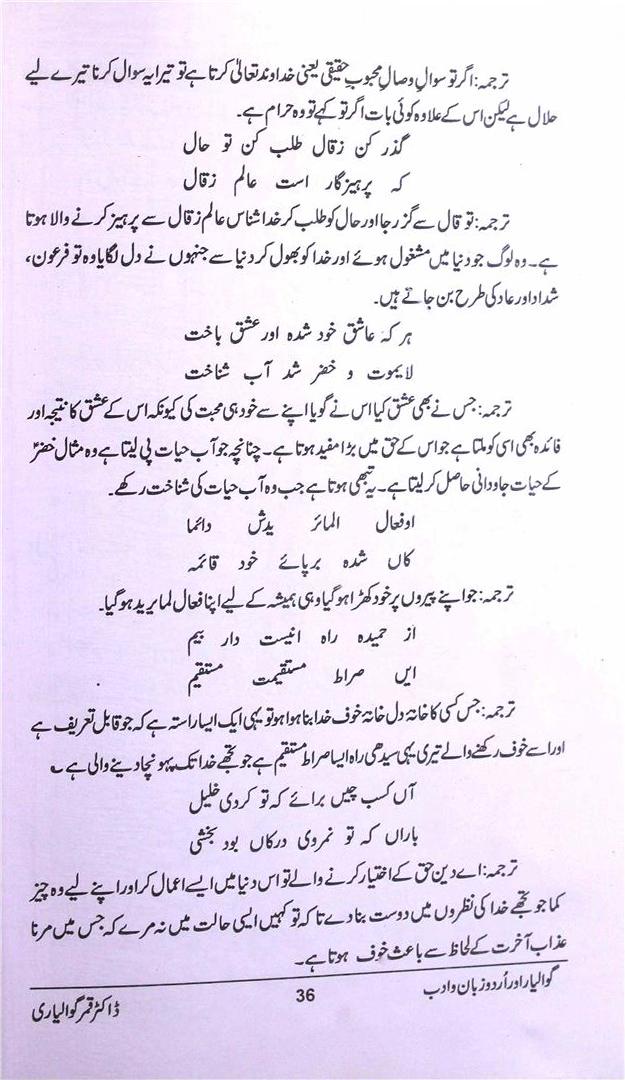 ترجمہ: اگر تو سوالِ وصالِ محبوبِ حقیقی یعنی خداوند تعالیٰ کرتا ہے تو تیرا یہ سوال کرنا تیرے لیے
حلال ہے لیکن اس کے علاوہ کوئی بات اگر تو کہے تو وہ حرام ہے۔
گذر کن زقال طلب کن تو حال
کہ پرہیزگار است عالم زقال
ترجمہ: تو قال سے گزر جا اور حال کو طلب کر خدا شناس عالم زقال سے پرہیز کرنے والا ہوتا
ہے۔ وہ لوگ جو دنیا میں مشغول ہوئے اور خدا کو بھول کر دنیا سے جنہوں نے دل لگایا وہ تو فرعون،
شداد اور عاد کی طرح بن جاتے ہیں۔
ہر کہ عاشق خود شدہ اور عشق باخت
لایموت و خضر شد آب شناخت
ترجمہ: جس نے بھی عشق کیا اس نے گویا اپنے سے خود ہی محبت کی کیونکہ اس کے عشق کا نتیجہ اور
فائدہ بھی اسی کو ملتا ہے جو اس کے حق میں بڑا مفید ہوتا ہے۔ چنانچہ جو آب حیات پی لیتا ہے وہ مثال خضرؑ
کے حیات جاودانی حاصل کر لیتا ہے۔ یہ تبھی ہوتا ہے جب وہ آب حیات کی شناخت رکھے۔
اوفعال المائر یدش دائما
کاں شدہ برپائے خود قائمہ
ترجمہ: جو اپنے پیروں پر خود کھڑا ہو گیا وہی ہمیشہ کے لیے اپنا فعال لما یرید ہو گیا۔
از حمیدہ راہ انیست دار بیم
ایں صراط مستقیمت مستقیم
ترجمہ: جس کسی کا خانۂ دل خانۂ خوف خدا بنا ہوا ہو تو یہی ایک ایسا راستہ ہے کہ جو قابل تعریف ہے
اور اسے خوف رکھنے والے تیری یہی سیدھی راہ ایسا صراط مستقیم ہے جو تجھے خدا تک پہونچا دینے والی ہے
آں کسب چیں برائے کہ تو کردی خلیل
باراں کہ تو نمروی درکاں بود بخشی
ترجمہ: اے دین حق کے اختیار کرنے والے تو اس دنیا میں ایسے اعمال کر اور اپنے لیے وہ چیز
کما جو تجھے خدا کی نظروں میں دوست بنا دے تاکہ تو کہیں ایسی حالت میں نہ مرے کہ جس میں مرنا
عذاب آخرت کے لحاظ سے باعث خوف ہوتا ہے۔
گوالیار اور اُردو زبان و ادب
36
ڈاکٹر قمر گوالیاری